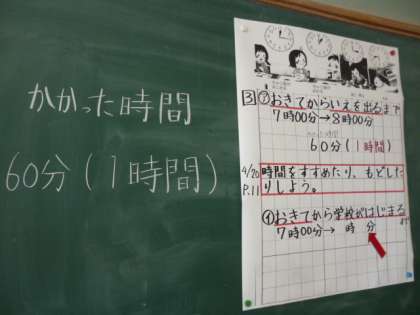 かかった時間
60分(1時間)
3 ㋐おきてからいえを出るまで
7時00分→8時00分
かかった時間
60分(1時間)
4/20
P.11
時間をすすめたり、もどした
りしよう。
㋑おきてから学校がはじまる
まで
7時00分→ 時 分